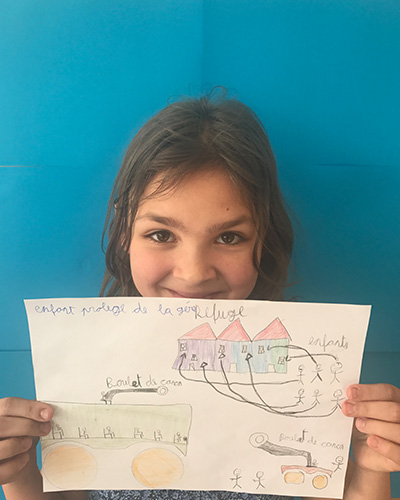 enfant protege de la gér Refuge
enfants
Boulet de canon
Boulet de canon